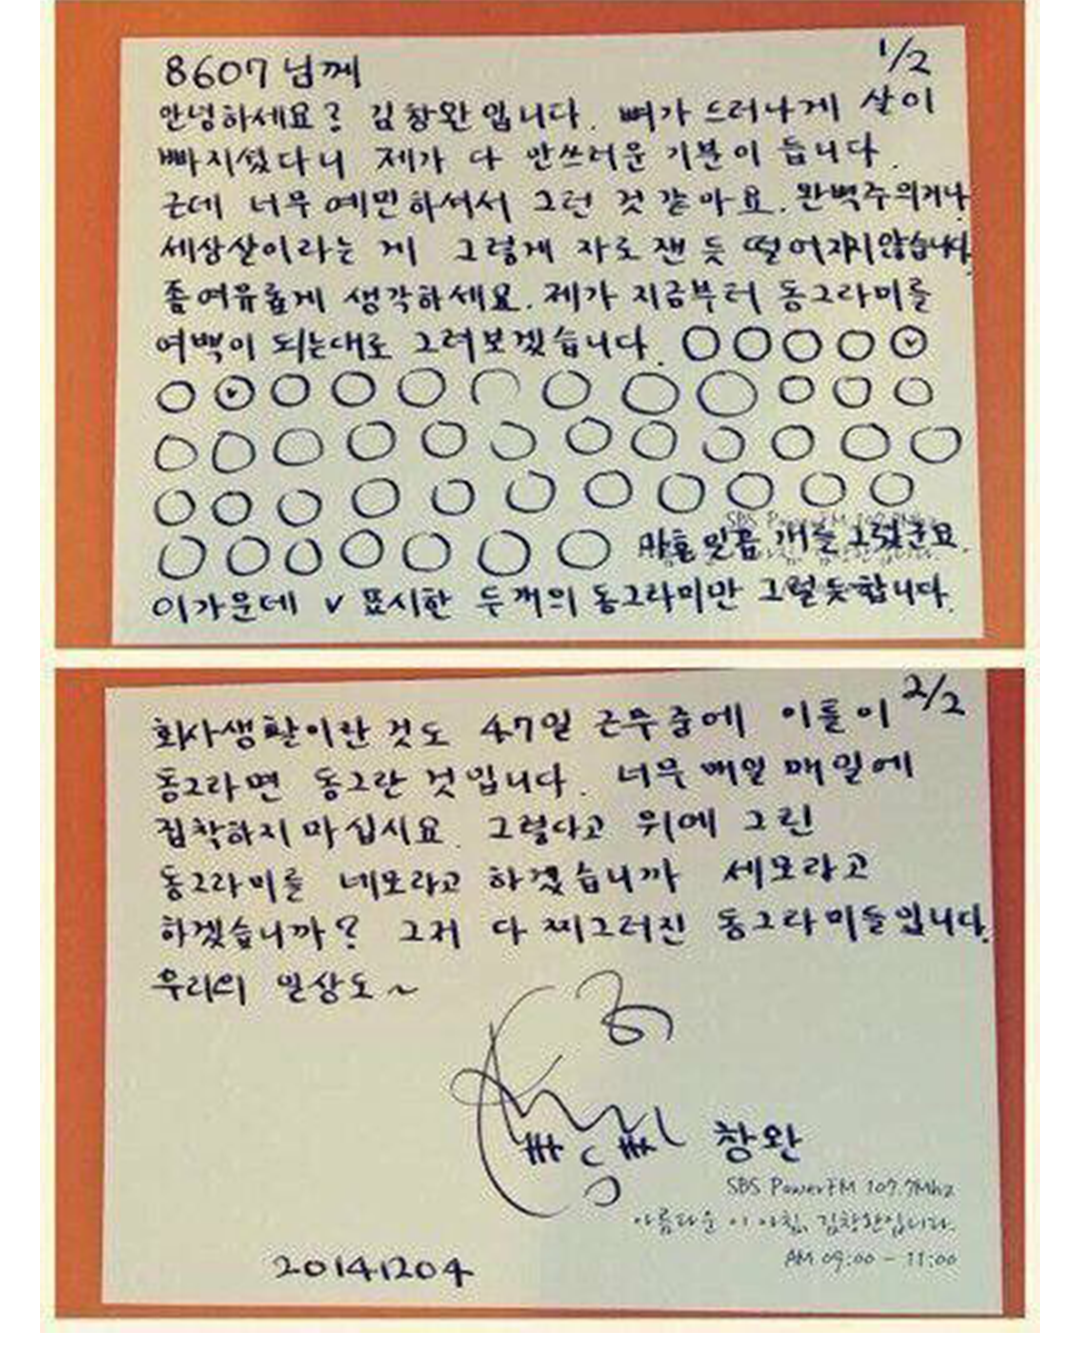 1/2
8607님께
안녕하세요? 김창완입니다. 뼈가 드러나게 살이
빠지셨다니 제가 다 안쓰러운 기분이 듭니다.
근데 너무 예민하셔서 그런 것 같아요. 완벽주의거나
세상살이라는 게 그렇게 자로 잰 듯 떨어지지 않습니다.
좀 여유롭게 생각하세요. 제가 지금부터 동그라미를
여백이 되는대로 그려보겠습니다.
마흔 일곱 개를 그렸군요.
이가운데 v 표시한 두개의 동그라미만 그럴듯합니다.
2/2
회사생활이란 것도 47일 근무중에 이틀이
동그라면 동그란 것입니다. 너무 매일 매일에
집착하지 마십시요. 그렇다고 위에 그린
동그라미를 네모라고 하겠습니까 세모라고
하겠습니까? 그저 다 찌그러진 동그라미들입니다.
우리의 일상도~
창완
SBS PowerFM 107.7Mhz
아름다운 이 아침, 김창완입니다.
AM 09:00 - 11:00
20141204